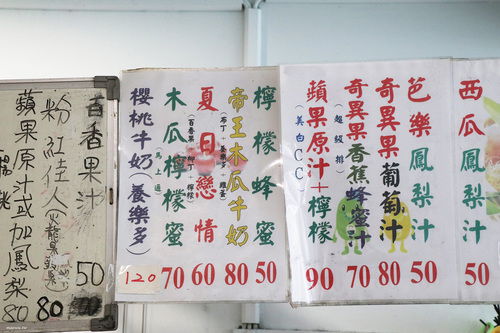 西瓜鳳梨汁
50
芭樂鳳梨汁
50
奇異果葡萄汁
80
奇異果香蕉蜂蜜汁
(超級排)
70
蘋果原汁+檸檬
(美白CC)
90
檸檬蜂蜜
50
帝王木瓜牛奶
80
夏日戀情
(百香果、柳丁、檸檬)
60
木瓜檸檬蜜
(馬上通)
70
櫻桃牛奶(養樂多)
120
百香果汁
50
粉紅佳人
80
蘋果原汁或加鳳梨
80